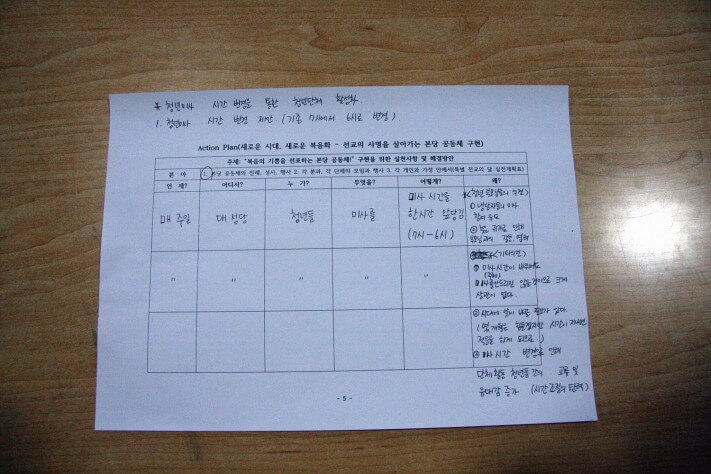 * 청년미사 시간 변경을 통한 청년단체 활성화
1. 청년미사 시간 변경 제안 (기존 7시에서 6시로 변경)
Action Plan(새로운 시대, 새로운 복음화 - 선교의 사명을 살아가는 본당 공동체 구현)
주제: "복음의 기쁨을 선포하는 본당 공동체!" 구현을 위한 실천사항 및 해결방안
분 야 1. 본당 공동체의 전례, 성사, 행사 2. 각 분과, 각 단체의 모임과 행사 3. 각 개인과 가정 안에서(특별 전교의 달 실천계획표)
언 제? 어디서? 누 가? 무엇을? 어떻게? 왜?
매 주일 대 성당 청년들 미사를 미사 시간을 한시간 앞당김 (7시-6시)
① 냉담자들의 미사
참여 유도
② 늦은 귀가로 인해
부모님과의 갈등
" " " " "
(기타의견)
① 미사 시간이 바뀌어도
상관이 없다
(몇 개월은 힘들겠지만 시간이 지나면
적응을 하게 되므로)
③ 미사 시간 변경으로 인해
단체활동 청년들 간의 교류 및
유대감 증가 (시간 조절의 탄력)
- 5 -